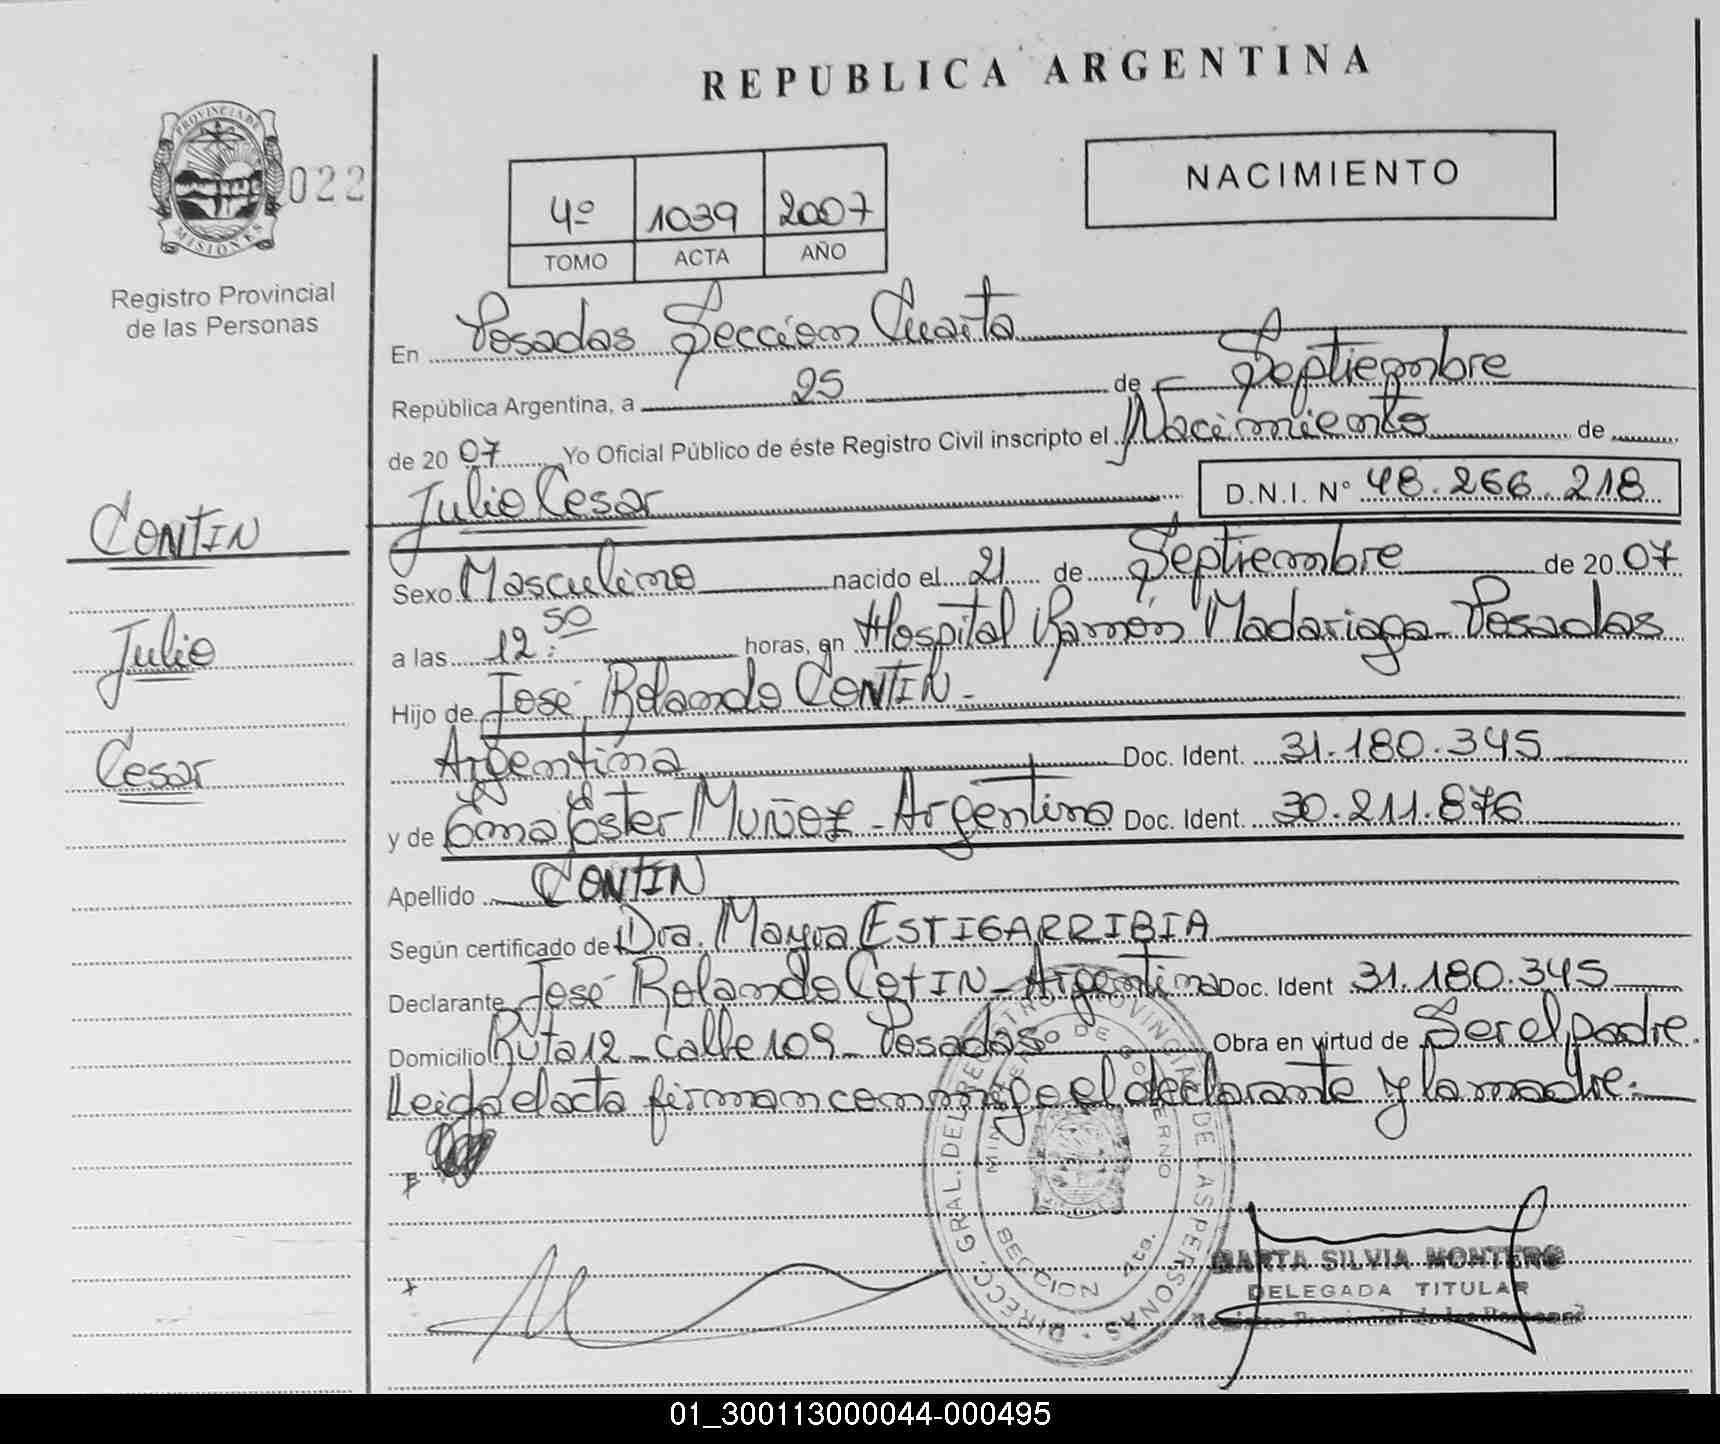 REPUBLICA ARGENTINA
PROVINCIA DE
MISIONES
022
Registro Provincial
de las Personas
4º 1039 2007
TOMO ACTA AÑO
NACIMIENTO
En Posadas Sección Cuarta
República Argentina, a 25 de Septiembre
de 20 07 Yo Oficial Público de éste Registro Civil inscripto el Nacimiento de
Julio Cesar D.N.I. Nº 48.266.218
CONTIN
Julio
Cesar
Sexo Masculino nacido el 21 de Septiembre de 20 07
a las 12:50 horas, en Hospital Ramón Madariaga - Posadas
Hijo de José Rolando CONTIN -
Argentina Doc. Ident. 31.180.345
y de Ema Ester MUÑOZ - Argentina Doc. Ident. 30.211.876
Apellido CONTIN
Según certificado de Dra. Mayra ESTIGARRIBIA
Declarante José Rolando CotIN - Argentina Doc. Ident 31.180.345
Domicilio Ruta 12 - calle 109 - Posadas Obra en virtud de Ser el padre.
Leida el acta firman conmigo el declarante y la madre.
DIRECC. GRAL. DEL REGISTRO PROVINCIAL DE LAS PERSONAS
MINISTERIO DE GOBIERNO
SECCION 4ta.
MARTA SILVIA MONTERO
DELEGADA TITULAR
Registro Provincial de las Personas
01_300113000044-000495